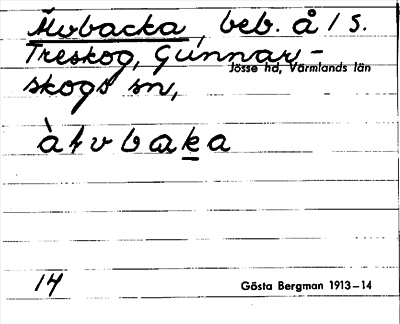 Älvbacka, beb. å 1 s.
Treskog, Gunnar-
Jösse hd, Värmlands län
skogs sn,
14
Gösta Bergman 1913–14